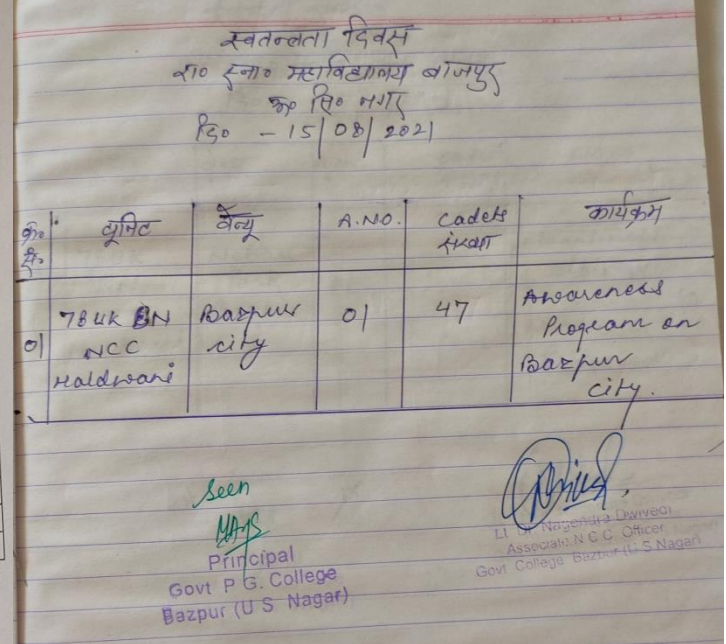 स्वतन्त्रता दिवस
रा० स्ना० महाविद्यालय बाजपुर
ऊ० सिं० नगर
दि० - 15/08/2021
क्र० सं० यूनिट वेन्यू A.NO. Cadets संख्या कार्यक्रम
01 78 UK BN NCC Haldwani Bazpur city 01 47 Awareness Program on Bazpur city.
Seen
Principal
Govt P G. College
Bazpur (U S Nagar)
Lt. Dr Nagendra Dwivedi
Associate N C C Officer
Govt College Bazpur (U S Nagar)